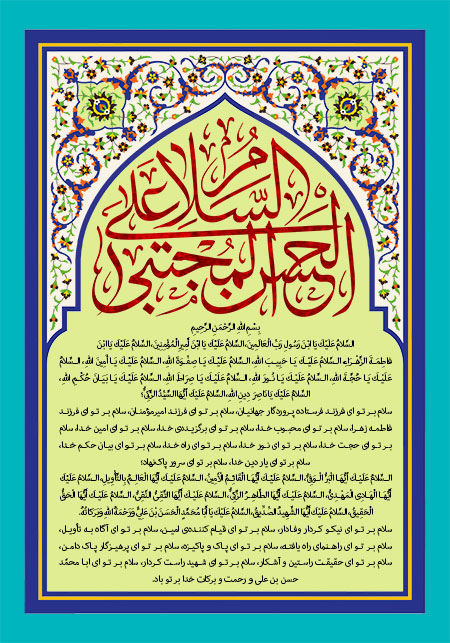 السلام علی
الحسن المجتبی
بِسْمِ اللهِ الرَّحْمَنِ الرَّحِيمِ
السَّلامُ عَلَيْكَ يَا ابْنَ رَسُولِ رَبِّ الْعَالَمِينَ، السَّلامُ عَلَيْكَ يَا ابْنَ أَمِيرِ الْمُؤْمِنِينَ، السَّلامُ عَلَيْكَ يَا ابْنَ
فَاطِمَةَ الزَّهْرَاءِ، السَّلامُ عَلَيْكَ يَا حَبِيبَ اللهِ، السَّلامُ عَلَيْكَ يَا صِفْوَةَ اللهِ، السَّلامُ عَلَيْكَ يَا أَمِينَ اللهِ، السَّلامُ
عَلَيْكَ يَا حُجَّةَ اللهِ، السَّلامُ عَلَيْكَ يَا نُورَ اللهِ، السَّلامُ عَلَيْكَ يَا صِرَاطَ اللهِ، السَّلامُ عَلَيْكَ يَا بَيَانَ حُكْمِ اللهِ،
السَّلامُ عَلَيْكَ يَا نَاصِرَ دِينِ اللهِ، السَّلامُ عَلَيْكَ أَيُّهَا السَّيِّدُ الزَّكِيُّ؛
سلام بر تو ای فرزند فرستاده پروردگار جهانیان، سلام بر تو ای فرزند امیرمؤمنان، سلام بر تو ای فرزند
فاطمه زهرا، سلام بر تو ای محبوب خدا، سلام بر تو ای برگزیده‌ی خدا، سلام بر تو ای امین خدا، سلام
بر تو ای حجت خدا، سلام بر تو ای نور خدا، سلام بر تو ای راه خدا، سلام بر تو ای بیان حکم خدا،
سلام بر تو ای یار دین خدا، سلام بر تو ای سرور پاک‌نهاد؛
السَّلامُ عَلَيْكَ أَيُّهَا الْبَرُّ الْوَفِيُّ، السَّلامُ عَلَيْكَ أَيُّهَا الْقَائِمُ الْأَمِينُ، السَّلامُ عَلَيْكَ أَيُّهَا الْعَالِمُ بِالتَّأْوِيلِ، السَّلامُ عَلَيْكَ
أَيُّهَا الْهَادِي الْمَهْدِيُّ، السَّلامُ عَلَيْكَ أَيُّهَا الطَّاهِرُ الزَّكِيُّ، السَّلامُ عَلَيْكَ أَيُّهَا التَّقِيُّ النَّقِيُّ، السَّلامُ عَلَيْكَ أَيُّهَا الْحَقُّ
الْحَقِيقُ، السَّلامُ عَلَيْكَ أَيُّهَا الشَّهِيدُ الصِّدِّيقُ، السَّلامُ عَلَيْكَ يَا أَبَا مُحَمَّدٍ الْحَسَنَ بْنَ عَلِيٍّ وَ رَحْمَةُ اللهِ وَ بَرَكَاتُهُ.
سلام بر تو ای نیکو کردار وفادار، سلام بر تو ای قیام کننده‌ی امین، سلام بر تو ای آگاه به تأویل،
سلام بر تو ای راهنمای راه یافته، سلام بر تو ای پاک و پاکیزه، سلام بر تو ای پرهیزگار پاک دامن،
سلام بر تو ای حقیقت راستین و آشکار، سلام بر تو ای شهید راست کردار، سلام بر تو ای ابا محمّد
حسن بن علی و رحمت و برکات خدا بر تو باد.